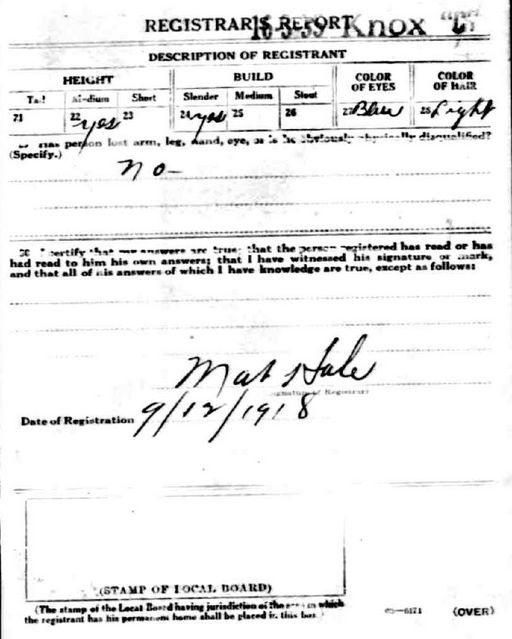 REGISTRAR'S REPORT
16-3-39 Knox "C"
DESCRIPTION OF REGISTRANT
HEIGHT BUILD COLOR OF EYES COLOR OF HAIR
Tall Medium Short Slender Medium Stout
21 22 yes 23 24 yes 25 26 27 Blue 28 Light
Has person lost arm, leg, hand, eye, or is he obviously physically disqualified?
(Specify.)
no -
30 I certify that my answers are true; that the person registered has read or has
had read to him his own answers; that I have witnessed his signature or mark,
and that all of his answers of which I have knowledge are true, except as follows:
Hale
(Signature of Registrar)
Date of Registration 9/12/1918
(STAMP OF LOCAL BOARD)
(The stamp of the Local Board having jurisdiction of the area in which
the registrant has his permanent home shall be placed in this box.)
—6171 (OVER)